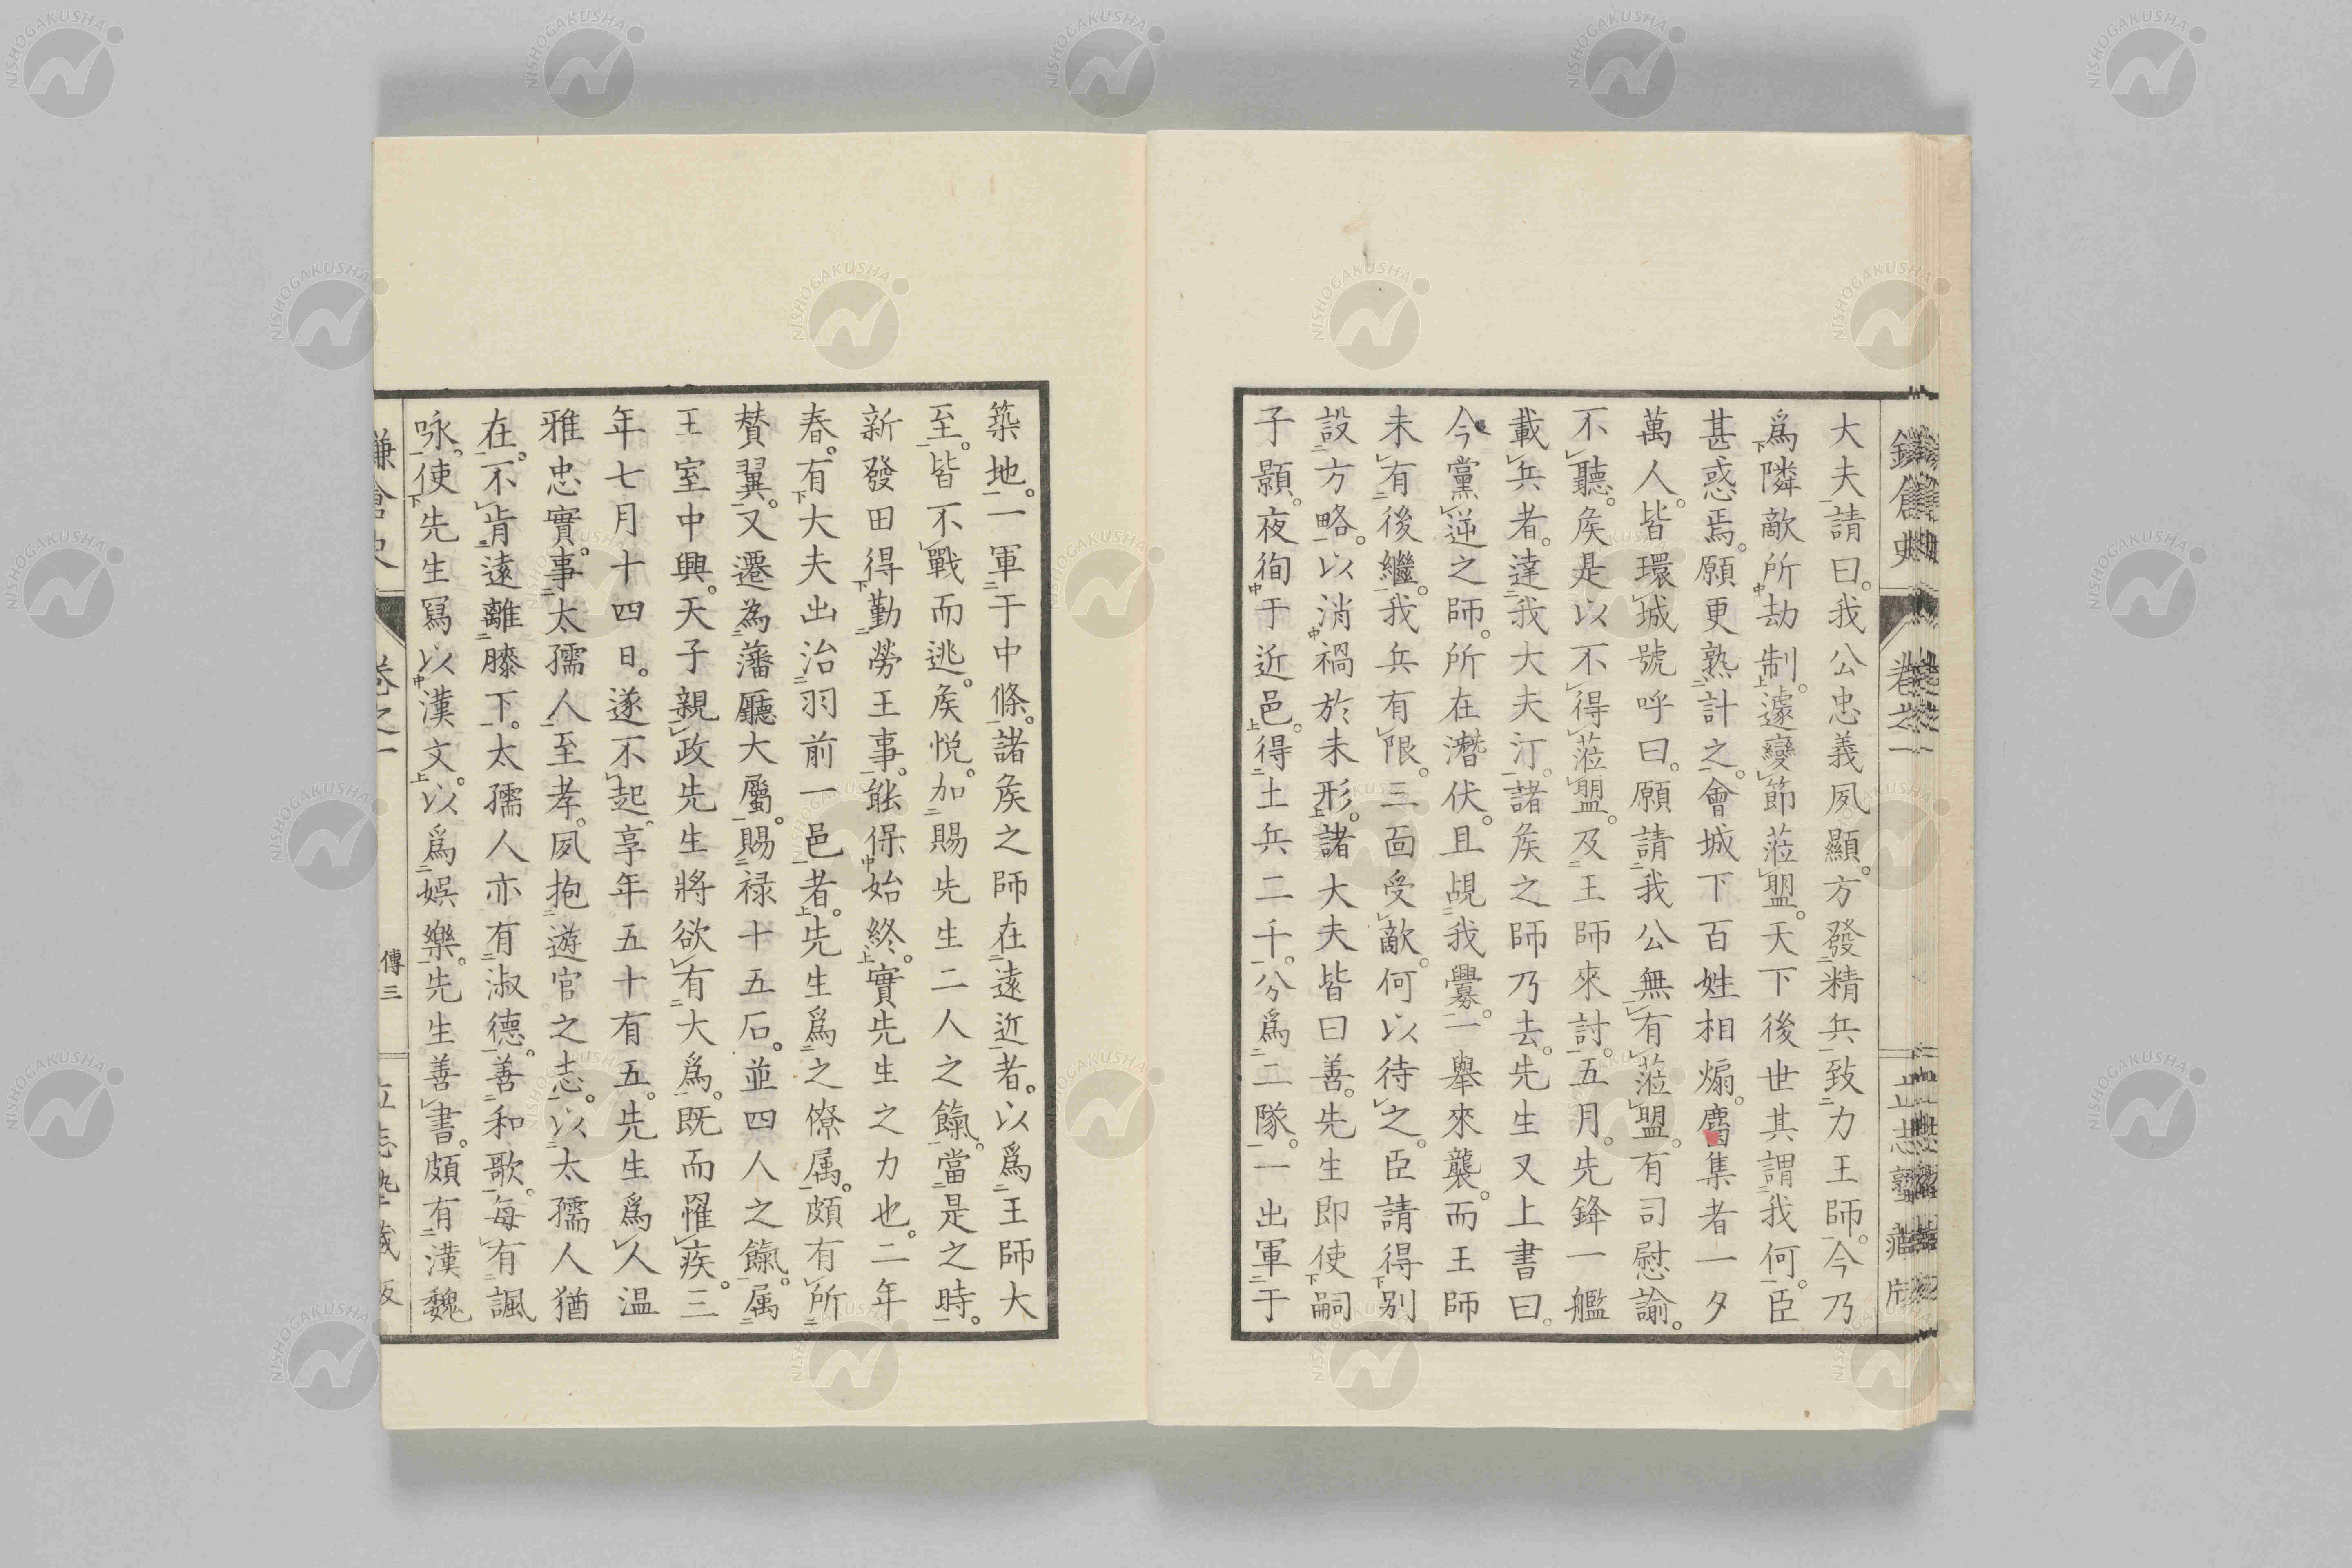 大夫請曰。我公忠義夙顯。方發精兵致力王師。今乃
爲隣敵所劫制。遽變節蒞盟。天下後世其謂我何。臣
甚惑焉。願更熟計之。會城下百姓相煽。麕集者一夕
萬人。皆環城號呼曰。願請我公無有蒞盟。有司慰諭。
不聽。矦是以不得蒞盟。及王師來討。五月。先鋒一艦
載兵者。達我大夫汀。諸矦之師乃去。先生又上書曰。
今黨逆之師。所在潛伏。且覘我釁。一舉來襲。而王師
未有後繼。我兵有限。三面受敵。何以待之。臣請得別
設方略。以消禍於未形。諸大夫皆曰善。先生即使嗣
子顥。夜徇于近邑。得土兵二千。分爲二隊。一出軍于
築地。一軍于中條。諸矦之師在遠近者。以爲王師大
至。皆不戰而逃。矦悦。加賜先生二人之餼。當是之時。
新發田得勤勞王事。能保始終。實先生之力也。二年
春。有大夫出治羽前一邑者。先生爲之僚属。頗有所
賛翼。又遷為藩廳大屬。賜禄十五石。並四人之餼。属
王室中興。天子親政先生將欲有大爲。既而罹疾。三
年七月十四日。遂不起。享年五十有五。先生爲人温
雅忠實。事太孺人至孝。夙抱遊官之志。以太孺人猶
在。不肯遠離膝下。太孺人亦有淑德。善和歌。毎有諷
咏。使先生冩以漢文。以爲娯樂。先生善書。頗有漢魏
卷之一
傳三